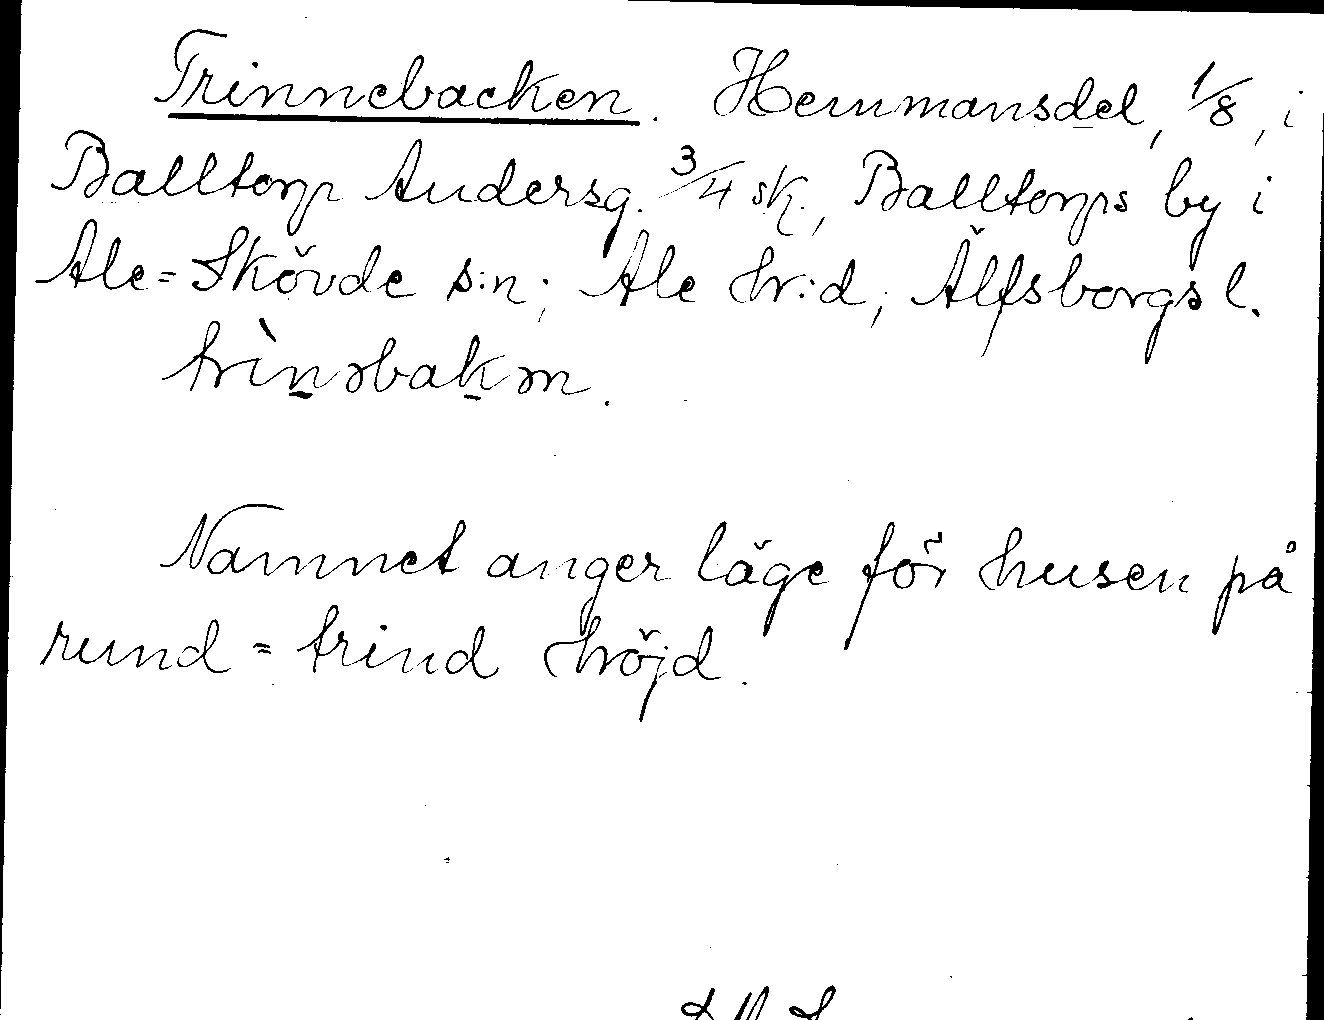 Trinnebacken. Hemmansdel, 1/8, i
Balltorp Andersg. 3/4 sk., Balltorps by i
Ale=Skövde s:n; Ale hr:d, Älfsborgs l.
trìnəbakən.
Namnet anger läge för husen på
rund = trind höjd.